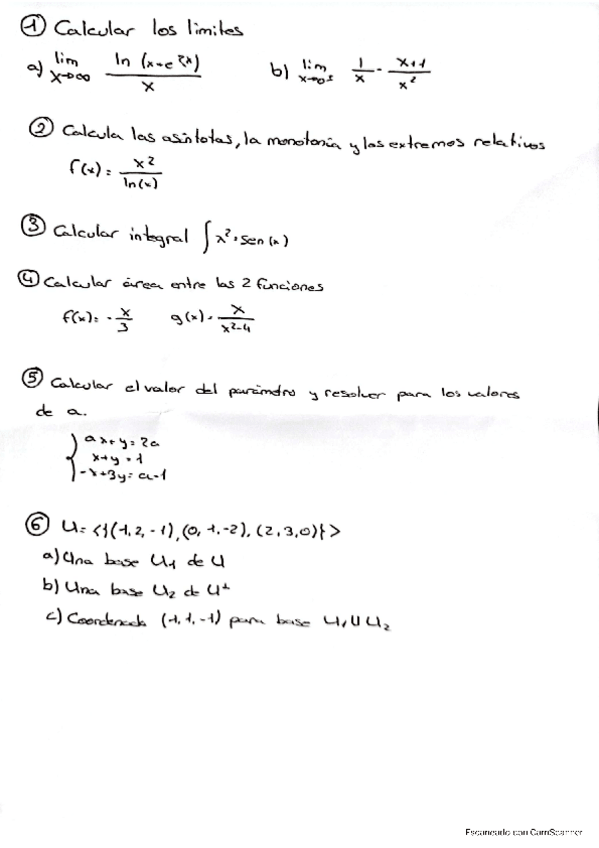 ① Calcular los limites
a) lim x→∞ ln (x+e^2x) / x b) lim x→0+ 1/x - x+1/x²
② Calcula las asíntotas, la monotonía y los extremos relativos
f(x) = x² / ln(x)
③ Calcular integral ∫ x² · sen(x)
④ Calcular área entre las 2 funciones
f(x) = -x/3 g(x) = x / x²-4
⑤ Calcular el valor del parámetro y resolver para los valores
de a.
ax+y = 2a
x+y = 1
-x+3y = a-1
⑥ U = <{(1,2,-1),(0,-1,-2),(2,3,0)}>
a) Una base U1 de U
b) Una base U2 de U⊥
c) Coordenada (-1,1,-1) para base U1 U U2
Escaneado con CamScanner